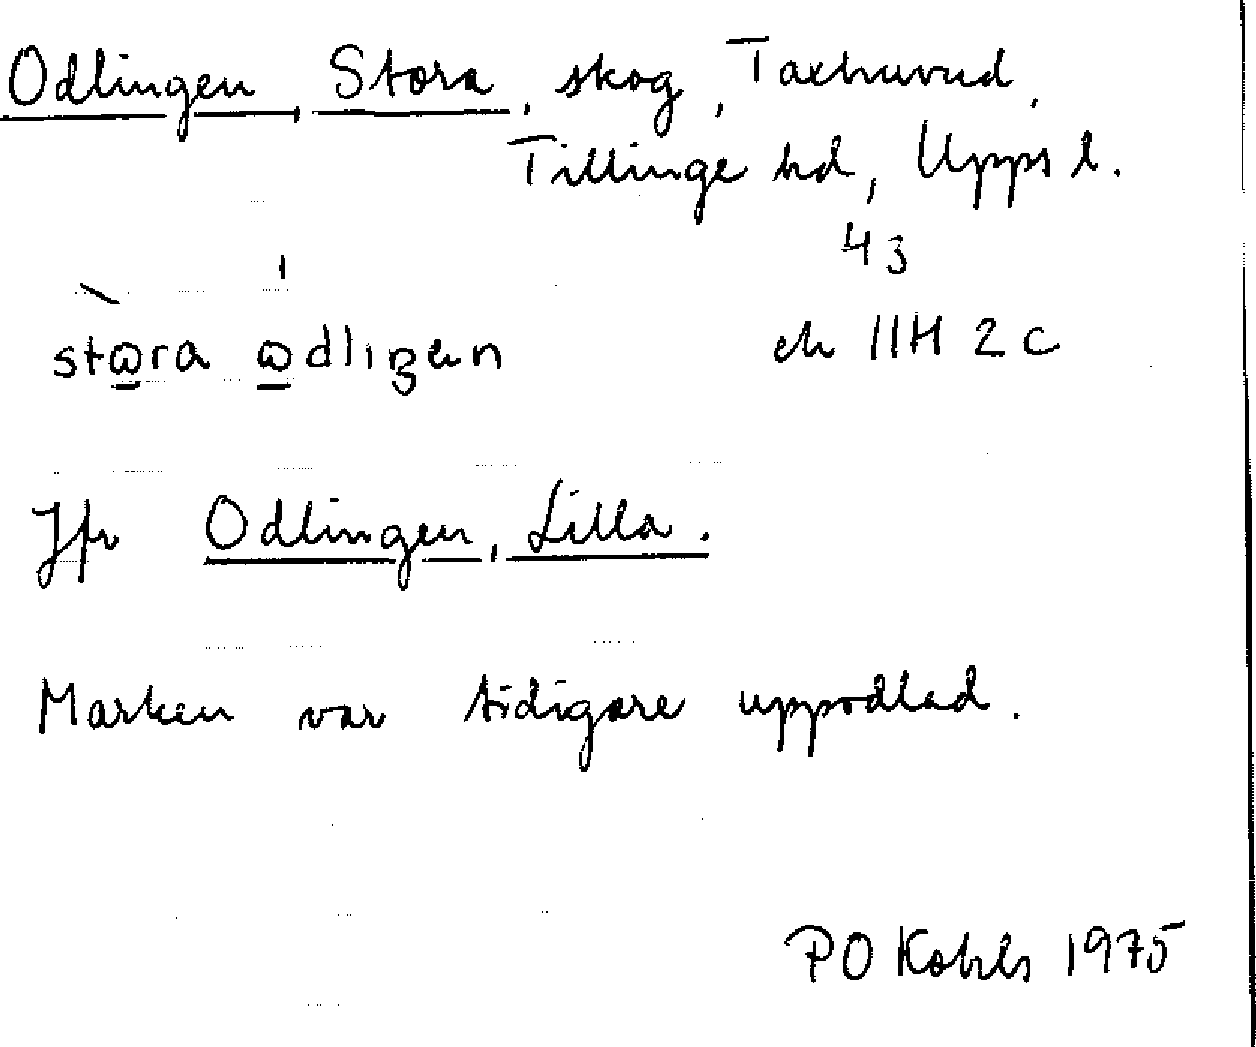 Odlingen, Stora, skog, Taxhuvud,
Tillinge hd, Upps l.
43
stωra ωdlıŋεn ek 11H 2c
Jfr Odlingen, Lilla.
Marken var tidigare uppodlad.
PO Kohls 1975